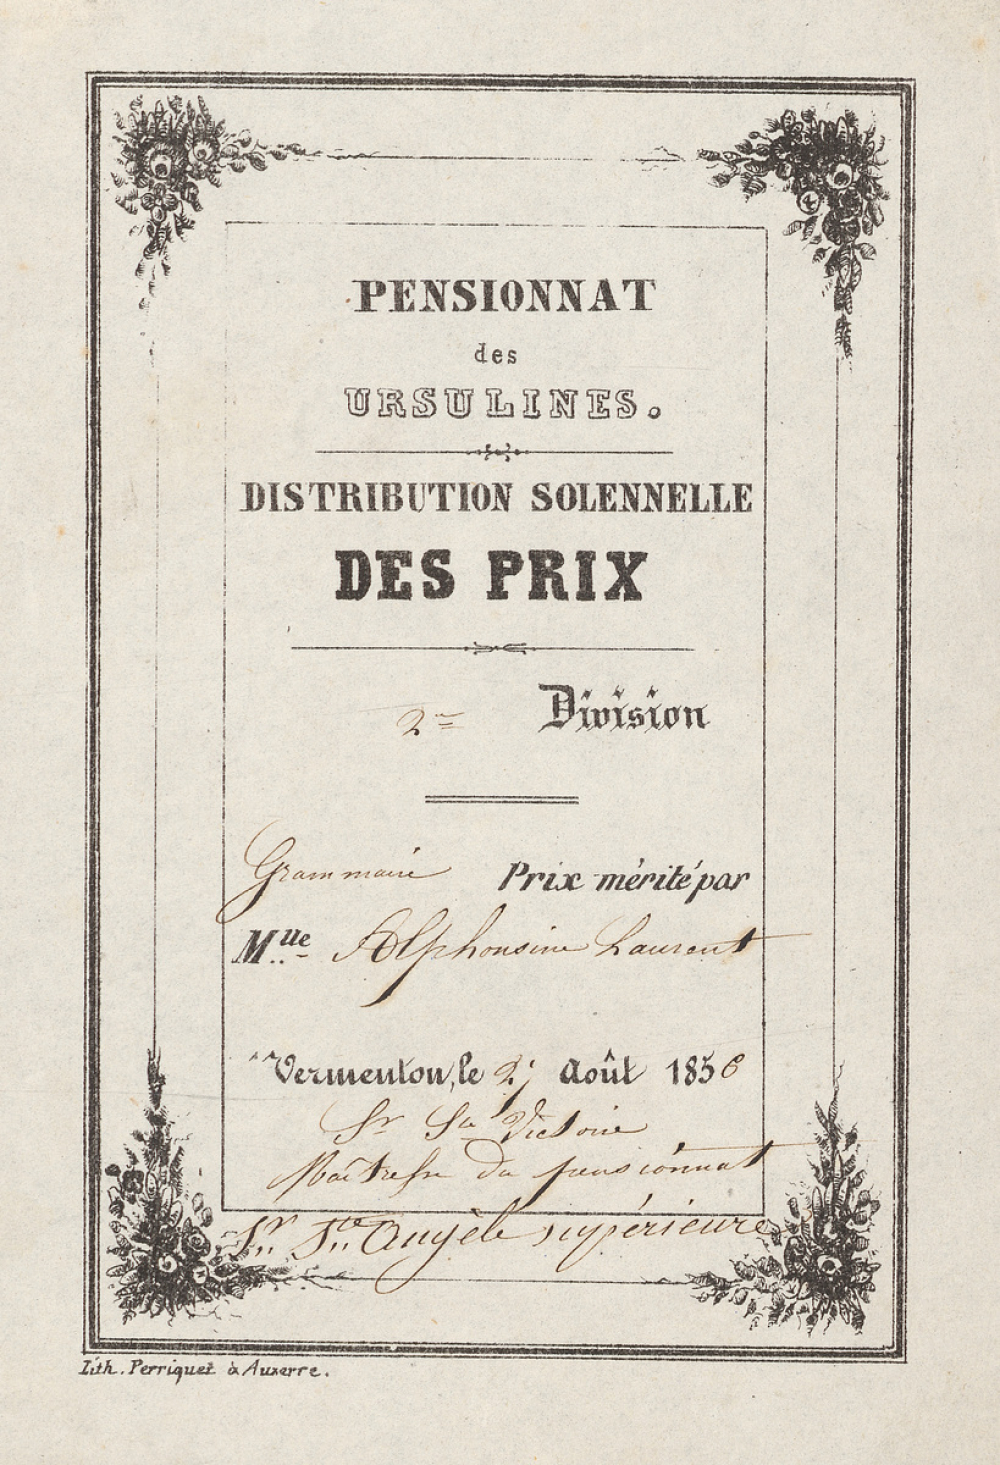 PENSIONNAT
des
URSULINES.
DISTRIBUTION SOLENNELLE
DES PRIX
2me Division
Grammaire Prix mérité par
Mlle Alphonsine Laurent
Vermenton, le Août 1856
Sr Ste Victoire
Maîtresse du pensionnat
Sr Ste Angèle supérieure
Lith. Perriquet à Auxerre.